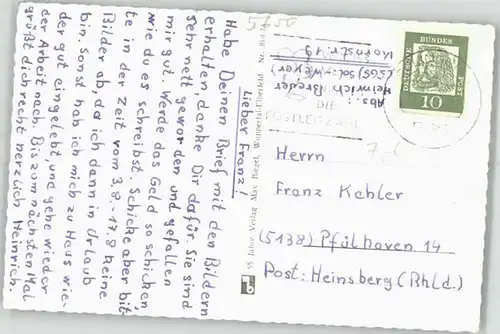 5450
Lieber Franz!
Habe Deinen Brief mit den Bildern
erhalten danke Dir dafür. Sie sind
sehr nett geworden und gefallen
mir gut. Werde das Geld so schicken,
wie du es schreibst. Schicke aber bit-
te in der Zeit vom 3.8.-17.8 keine
Bilder ab, da ich dann in Urlaub
bin. Sonst hab ich mich zu Haus wie-
der gut eingelebt, und gehe wieder
der Arbeit nach. Bis zum nächsten Mal
grüßt dich recht herzlich Heinrich.
55 Jahre Verlag Max Biegel, Wuppertal-Elberfeld. Nr.
Abs.:
Heinrich Breder
(565) Sol. (Weyer)
Kornstr. 49
DIE
POSTLEITZAHL
DEUTSCHE
BUNDES
POST
10
Herrn
Franz Kahler
(5138) Pfülhoven 14
Post: Heinsberg (Rhld.)